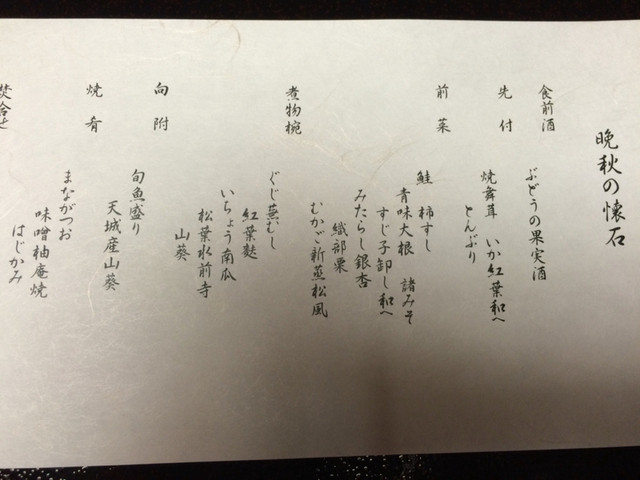 晩秋の懐石
食前酒
ぶどうの果実酒
先付
焼舞茸 いか紅葉和へ
とんぶり
前菜
鮭 柿すし
青味大根 諸みそ
すじ子卸し和へ
みたらし銀杏
織部栗
むかご新蒸松風
煮物椀
ぐじ蕪むし
紅葉麩
いちょう南瓜
松葉水前寺
山葵
向附
旬魚盛り
天城産山葵
焼肴
まながつお
味噌柚庵焼
はじかみ
焚合せ